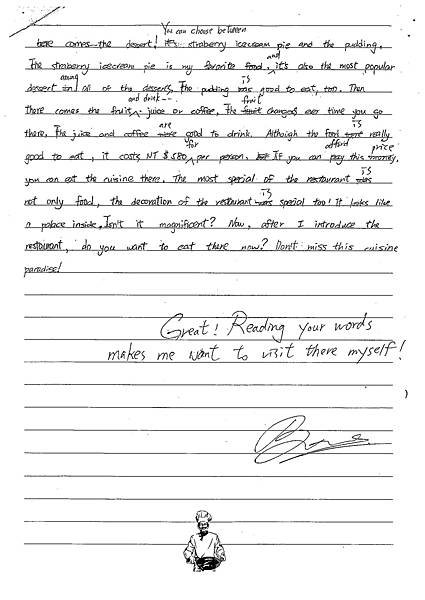 You can choose between
here comes the dessert! It's straberry icecream pie and the pudding.
and
The straberry icecream pie is my favorite food, it's also the most popular
among is
dessert in all of the desserts, the pudding was good to eat, too. Then
and drink-- fruit
there comes the fruit, juice or coffee. The fruit changes ever time you go
are is
there. The juice and coffee were good to drink. Although the food were really
for afford price
good to eat, it costs NT $580 per person. but If you can pay this money,
is
you can eat the cuisine there. The most special of the restaurant was
is
not only food, the decoration of the restaurant was special too! It looks like
a palace inside. Isn't it magnificent? Now, after I introduce the
restaurant, do you want to eat there now? Don't miss this cuisine
paradise!
Great! Reading your words
makes me want to visit there myself!